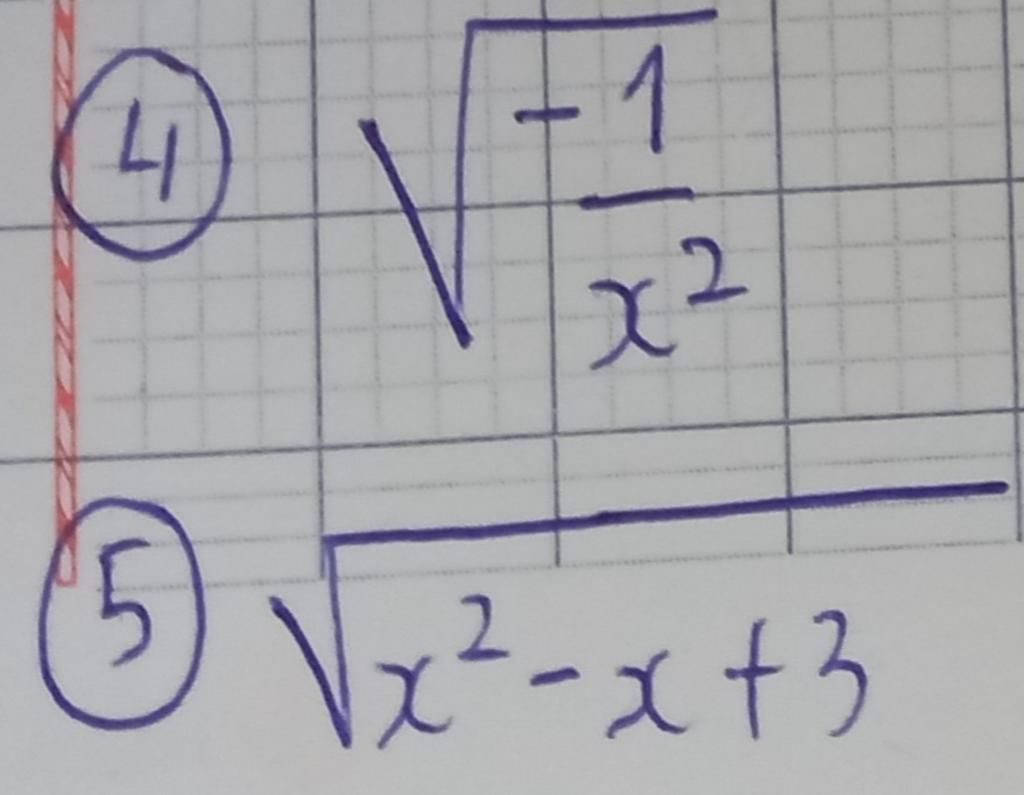 ④ √(-1/x²)
⑤ √(x² - x + 3)